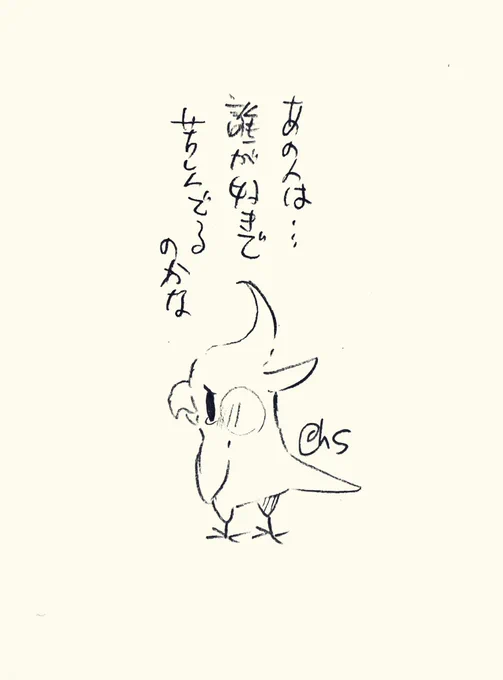 あの人は…
誰が好きで
苦しんでる
のかな
@hs